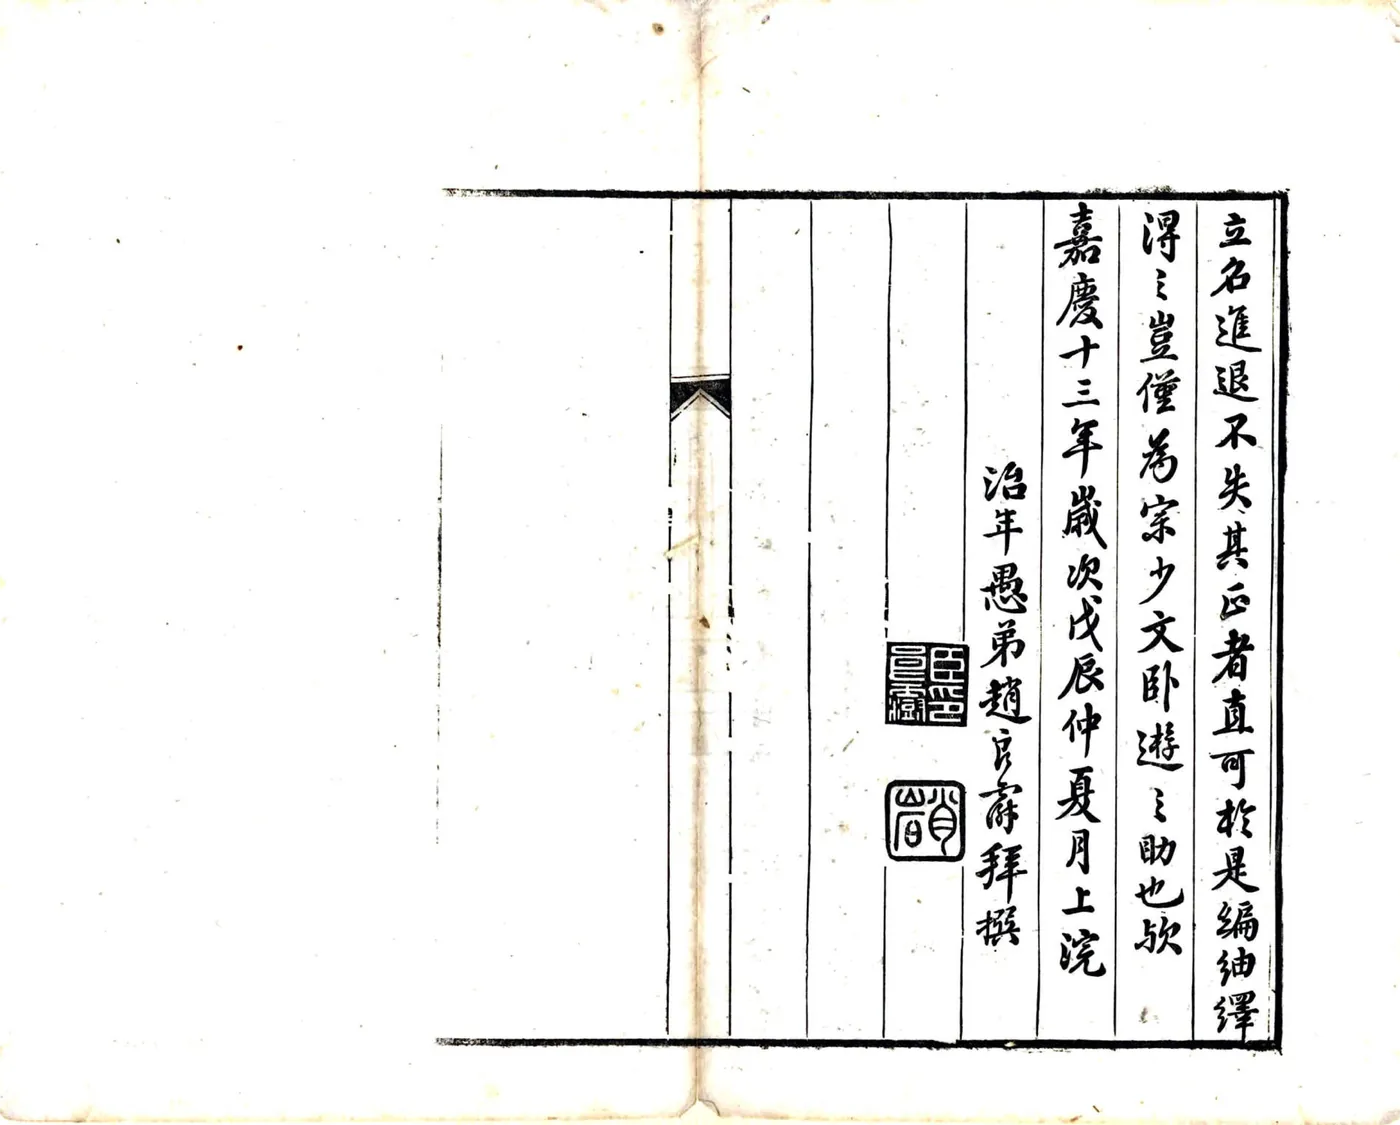 立名進退不失其正者直可於是編紬繹
得之豈僅為宗少文卧遊之助也歟
嘉慶十三年歲次戊辰仲夏月上浣
治年愚弟趙良拜撰
臣印良
肖岩